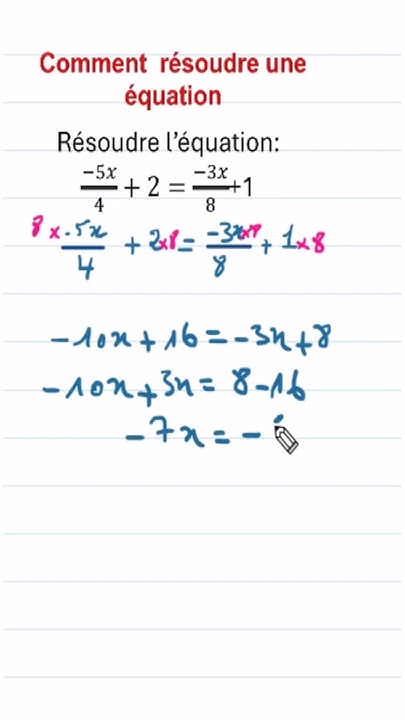 Comment résoudre une
équation
Résoudre l'équation:
-5x/4 + 2 = -3x/8 +1
8 x -5x/4 + 2x8 = -3x x8/8 + 1x8
-10x + 16 = -3x + 8
-10x + 3x = 8 - 16
-7x = -